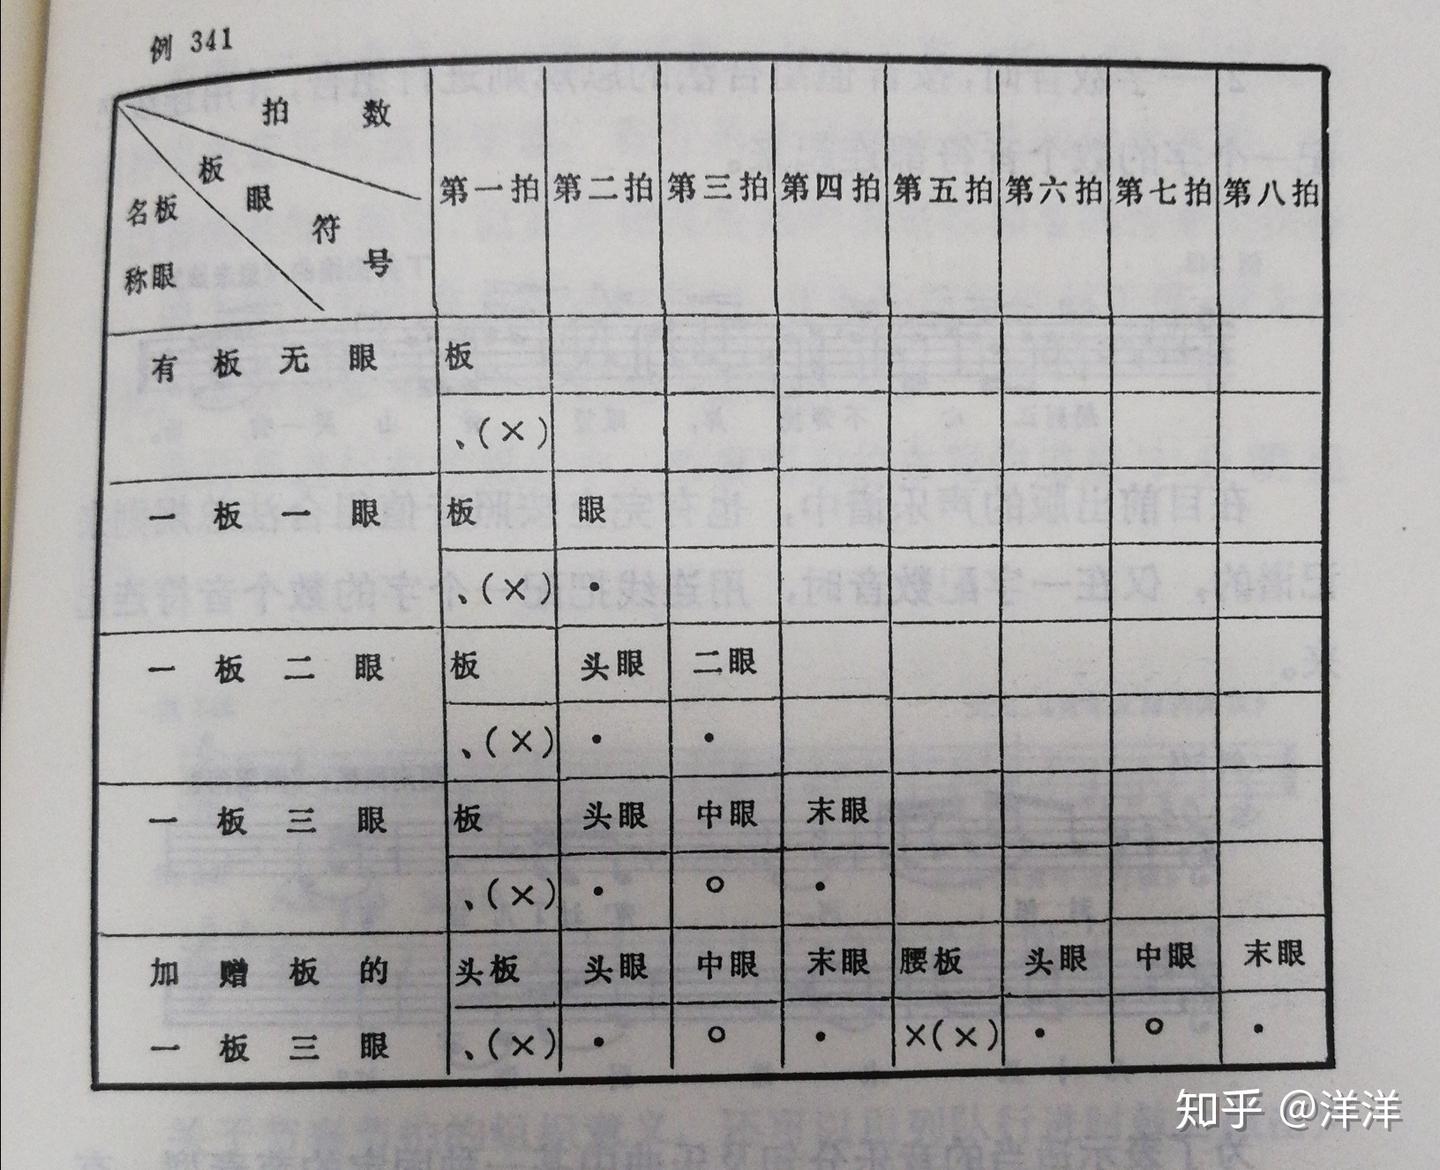 例 341
拍 数
板 眼 符 号
名称 板眼
第一拍 第二拍 第三拍 第四拍 第五拍 第六拍 第七拍 第八拍
有 板 无 眼 板
、(×)
一 板 一 眼 板 眼
、(×) •
一 板 二 眼 板 头眼 二眼
、(×) • •
一 板 三 眼 板 头眼 中眼 末眼
、(×) • ○ •
加 赠 板 的 头板 头眼 中眼 末眼 腰板 头眼 中眼 末眼
一 板 三 眼 、(×) • ○ • ×(×) • ○ •
知乎 @洋洋